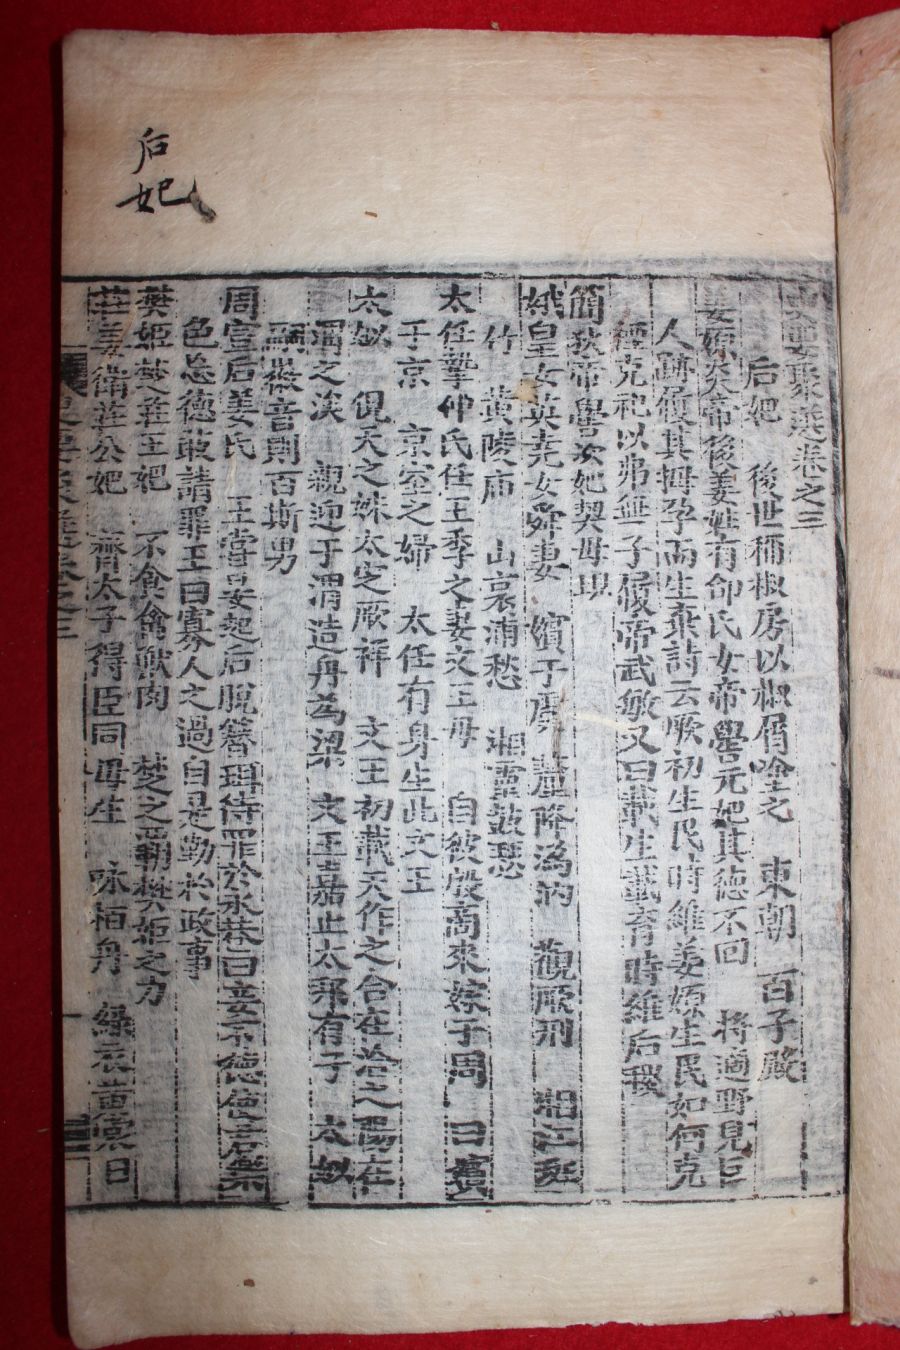 后妃
史要聚選卷之三
后妃 後世稱椒房以椒屑塗之 東朝 百子殿
姜嫄炎帝後姜姓有邰氏女帝嚳元妃其德不回 將適野見巨
人跡履其拇孕而生棄詩云厥初生民時維姜嫄生民如何克
禋克祀以弗無子履帝武敏又曰載生載育時維后稷
簡狄帝嚳次妃契母
娥皇女英堯女舜妻 嬪于虞 釐降溈汭 觀厥刑 湘江班
竹 黃陵庙 山哀浦愁 湘靈鼓瑟
太任摯仲氏任王季之妻文王母 自彼殷商來嫁于周 曰嬪
于京 京室之婦 太任有身生此文王
太姒 俔天之妹太定厥祥 文王初載天作之合在洽之陽在
渭之涘 親迎于渭造舟為梁 文王嘉止太邦有子 太姒
嗣徽音則百斯男
周宣后姜氏 王嘗晏起后脫簪珥待罪於永巷曰妾不德使君樂
色忘德敢請罪王曰寡人之過自是勤於政事
樊姬楚莊王妃 不食禽獸肉 楚之霸樊姬之力
莊姜衛莊公妃 齊太子得臣同母生 咏栢舟 綠衣黃裳曰
史要聚選卷之三